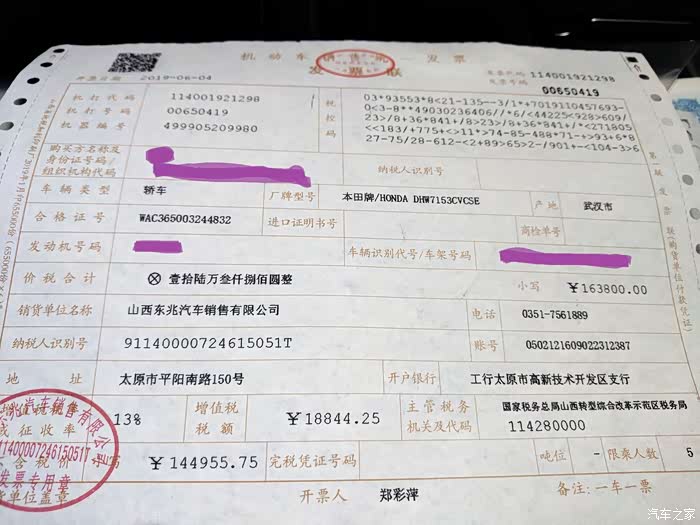 机动车销售统一发票
发票联
发票代码 114001921298
发票号码 00650419
开票日期 2019-06-04
机打代码 114001921298
机打号码 00650419
机器编号 499905209980
税控码
03*93553*8<21-135--3/1*+7019110457693-
0<3-8**49030236406//*6/<44225<928>609/
23>/8+36*841+/8>23>/8+36*841+/*<271805
<<183/+775+<>11*>74-85-488*71-+>93+6*8
27-75/28-612-<2+89>65>2-/901+-<104-3>6
购买方名称及
身份证号码/
组织机构代码
纳税人识别号
车辆类型 轿车 厂牌型号 本田牌/HONDA DHW7153CVCSE 产地 武汉市
合格证号 WAC365003244832 进口证明书号 商检单号
发动机号码 车辆识别代号/车架号码
价税合计 ⊗壹拾陆万叁仟捌佰圆整 小写 ￥163800.00
销货单位名称 山西东兆汽车销售有限公司 电话 0351-7561889
纳税人识别号 91140000724615051T 账号 0502121609022312387
地址 太原市平阳南路150号 开户银行 工行太原市高新技术开发区支行
增值税税率
或征收率 13% 增值税
税额 ￥18844.25 主管税务
机关及代码 国家税务总局山西转型综合改革示范区税务局
114280000
不含税价 ￥144955.75 完税凭证号码 吨位 - 限乘人数 5
销货单位盖章 开票人 郑彩萍 备注:一车一票
91140000724615051T
发票专用章
第一联 发票联(购货单位付款凭证)
汽车之家